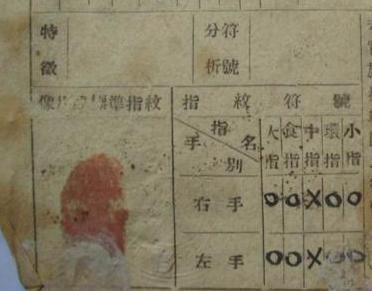 特徵
分析 符號
像片 標準指紋
指紋符號
指名
手別
大指 食指 中指 環指 小指
右手 O O X O O
左手 O O X O O